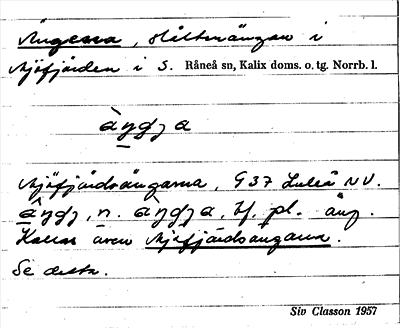 Ängena, slåtterängar i
Sjöfjärden i S. Råneå sn, Kalix doms. o. tg. Norrb. l.
àŋgʒa
Sjöfjärdsängarna, G 37 Luleå NV.
âŋgʒ, n. àŋgʒa, bf. pl. äng.
Kallas även Sjöfjärdsängarna.
Se detta.
Siv Classon 1957